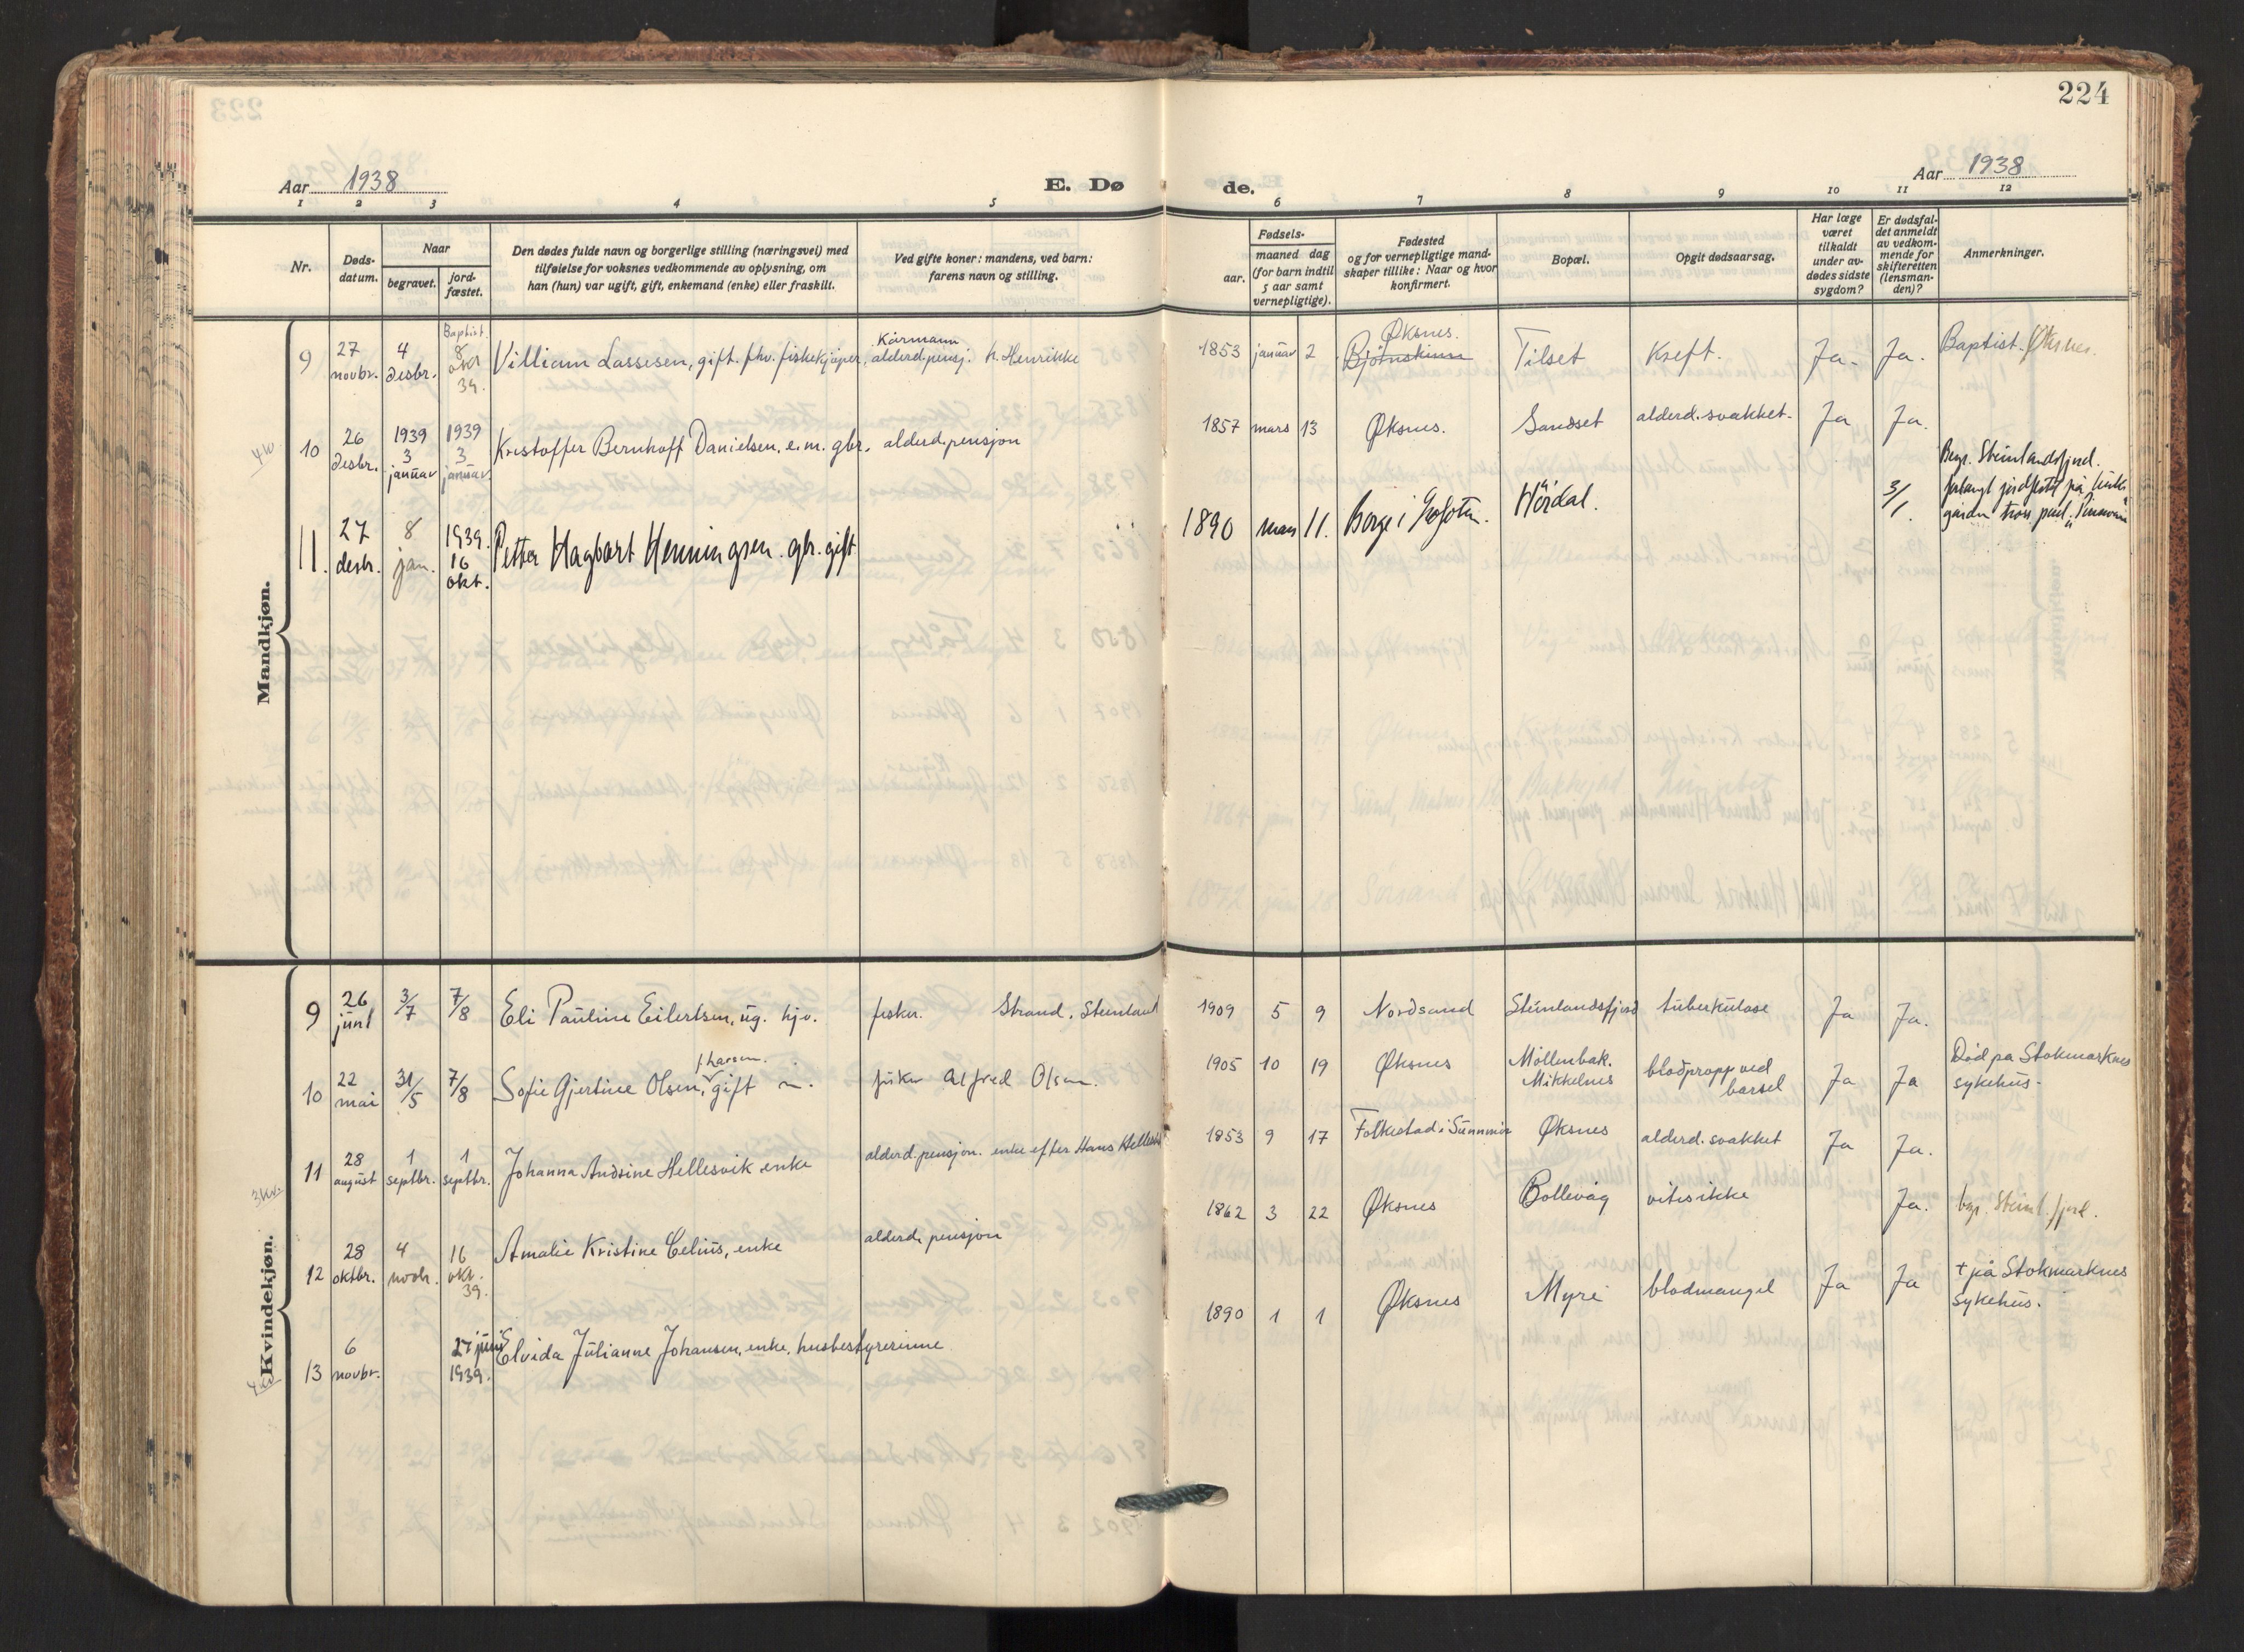 224
Aar 1938
E. Dø
de.
Aar 1938
1 2 3 4 5 6 7 8 9 10 11 12
Nr.
Døds-
datum.
Naar
begravet.
jord-
fæstet.
Den dødes fulde navn og borgerlige stilling (næringsvei) med
tilføielse for voksnes vedkommende av oplysning, om
han (hun) var ugift, gift, enkemand (enke) eller fraskilt.
Ved gifte koner: mandens, ved barn:
farens navn og stilling.
Fødsels-
aar.
maaned dag
(for barn indtil
5 aar samt
vernepligtige).
Fødested
og for vernepligtige mand-
skaper tillike: Naar og hvor
konfirmert.
Bopæl.
Opgit dødsaarsag.
Har læge
været
tilkaldt
under av-
dødes sidste
sygdom?
Er dødsfal-
det anmeldt
av vedkom-
mende for
skifteretten
(lensman-
den)?
Anmerkninger.
Mandkjøn.
9
27
novbr.
4
desbr.
Baptist.
8
okt
39.
Villiam Lassesen, gift. fhv. fiskekjøper,
Kårmann
alderd.pensj. h. Henrikke
1853 januar 2
Øksnes.
Bjørnskinn
Tilset
Kreft.
Ja.
Ja.
Baptist. Øksnes.
10
26
desbr.
1939
3
januar
1939
3
januar
Kristoffer Bernhoff Danielsen, e.m. gbr. alderd.pensjon
1857 mars 13 Øksnes. Sandset alderd.svakket. Ja Ja.
11.
27
desbr.
8
jan.
1939.
16
okt.
Petter Hagbart Henningsen. gbr. gift
1890 mars 11. Borge i Lofoten. Hördal.
3/1.
Begr. Steinlandsfjord.
Kvindekjøn.
9
26
juni
3/7
7/8
Eli Pauline Eilertsen, ug. hjv.
fisker. Strand, Steinland
1909 5 9 Nordsand Steinlandsfjord tuberkulose Ja Ja.
10
22
mai
31/5
7/8
f. Larsen.
Sofie Gjertine Olsen, gift
fisker Alfred Olsen.
1905 10 19 Øksnes
Mollenbak.
Mikkelnes
blodpropp ved
barsel
Ja Ja
Död pa Stokmarknes
sykehus.
11
28
august
1
septbr.
1
septbr.
Johanna Andsine Hellesvik enke
alderd.pensjon. enke efter Hans Hellesvik
1853 9 17 Folkestad i Sunnmör Øksnes alderd.svakket Ja Ja.
12
28
oktbr.
4
novbr.
16
okt.
39.
Amalie Kristine Celius, enke
alderd. pensjon
1862 3 22 Øksnes Bollevåg vites ikke Ja.
begr. Steinl.fjord.
13
6
novbr.
27 juni
1939.
Elvida Julianne Johansen, enke, husbestyrerinne
1890 1 1 Øksnes Myre blodmangel Ja Ja
+ på Stokmarknes
sykehus.